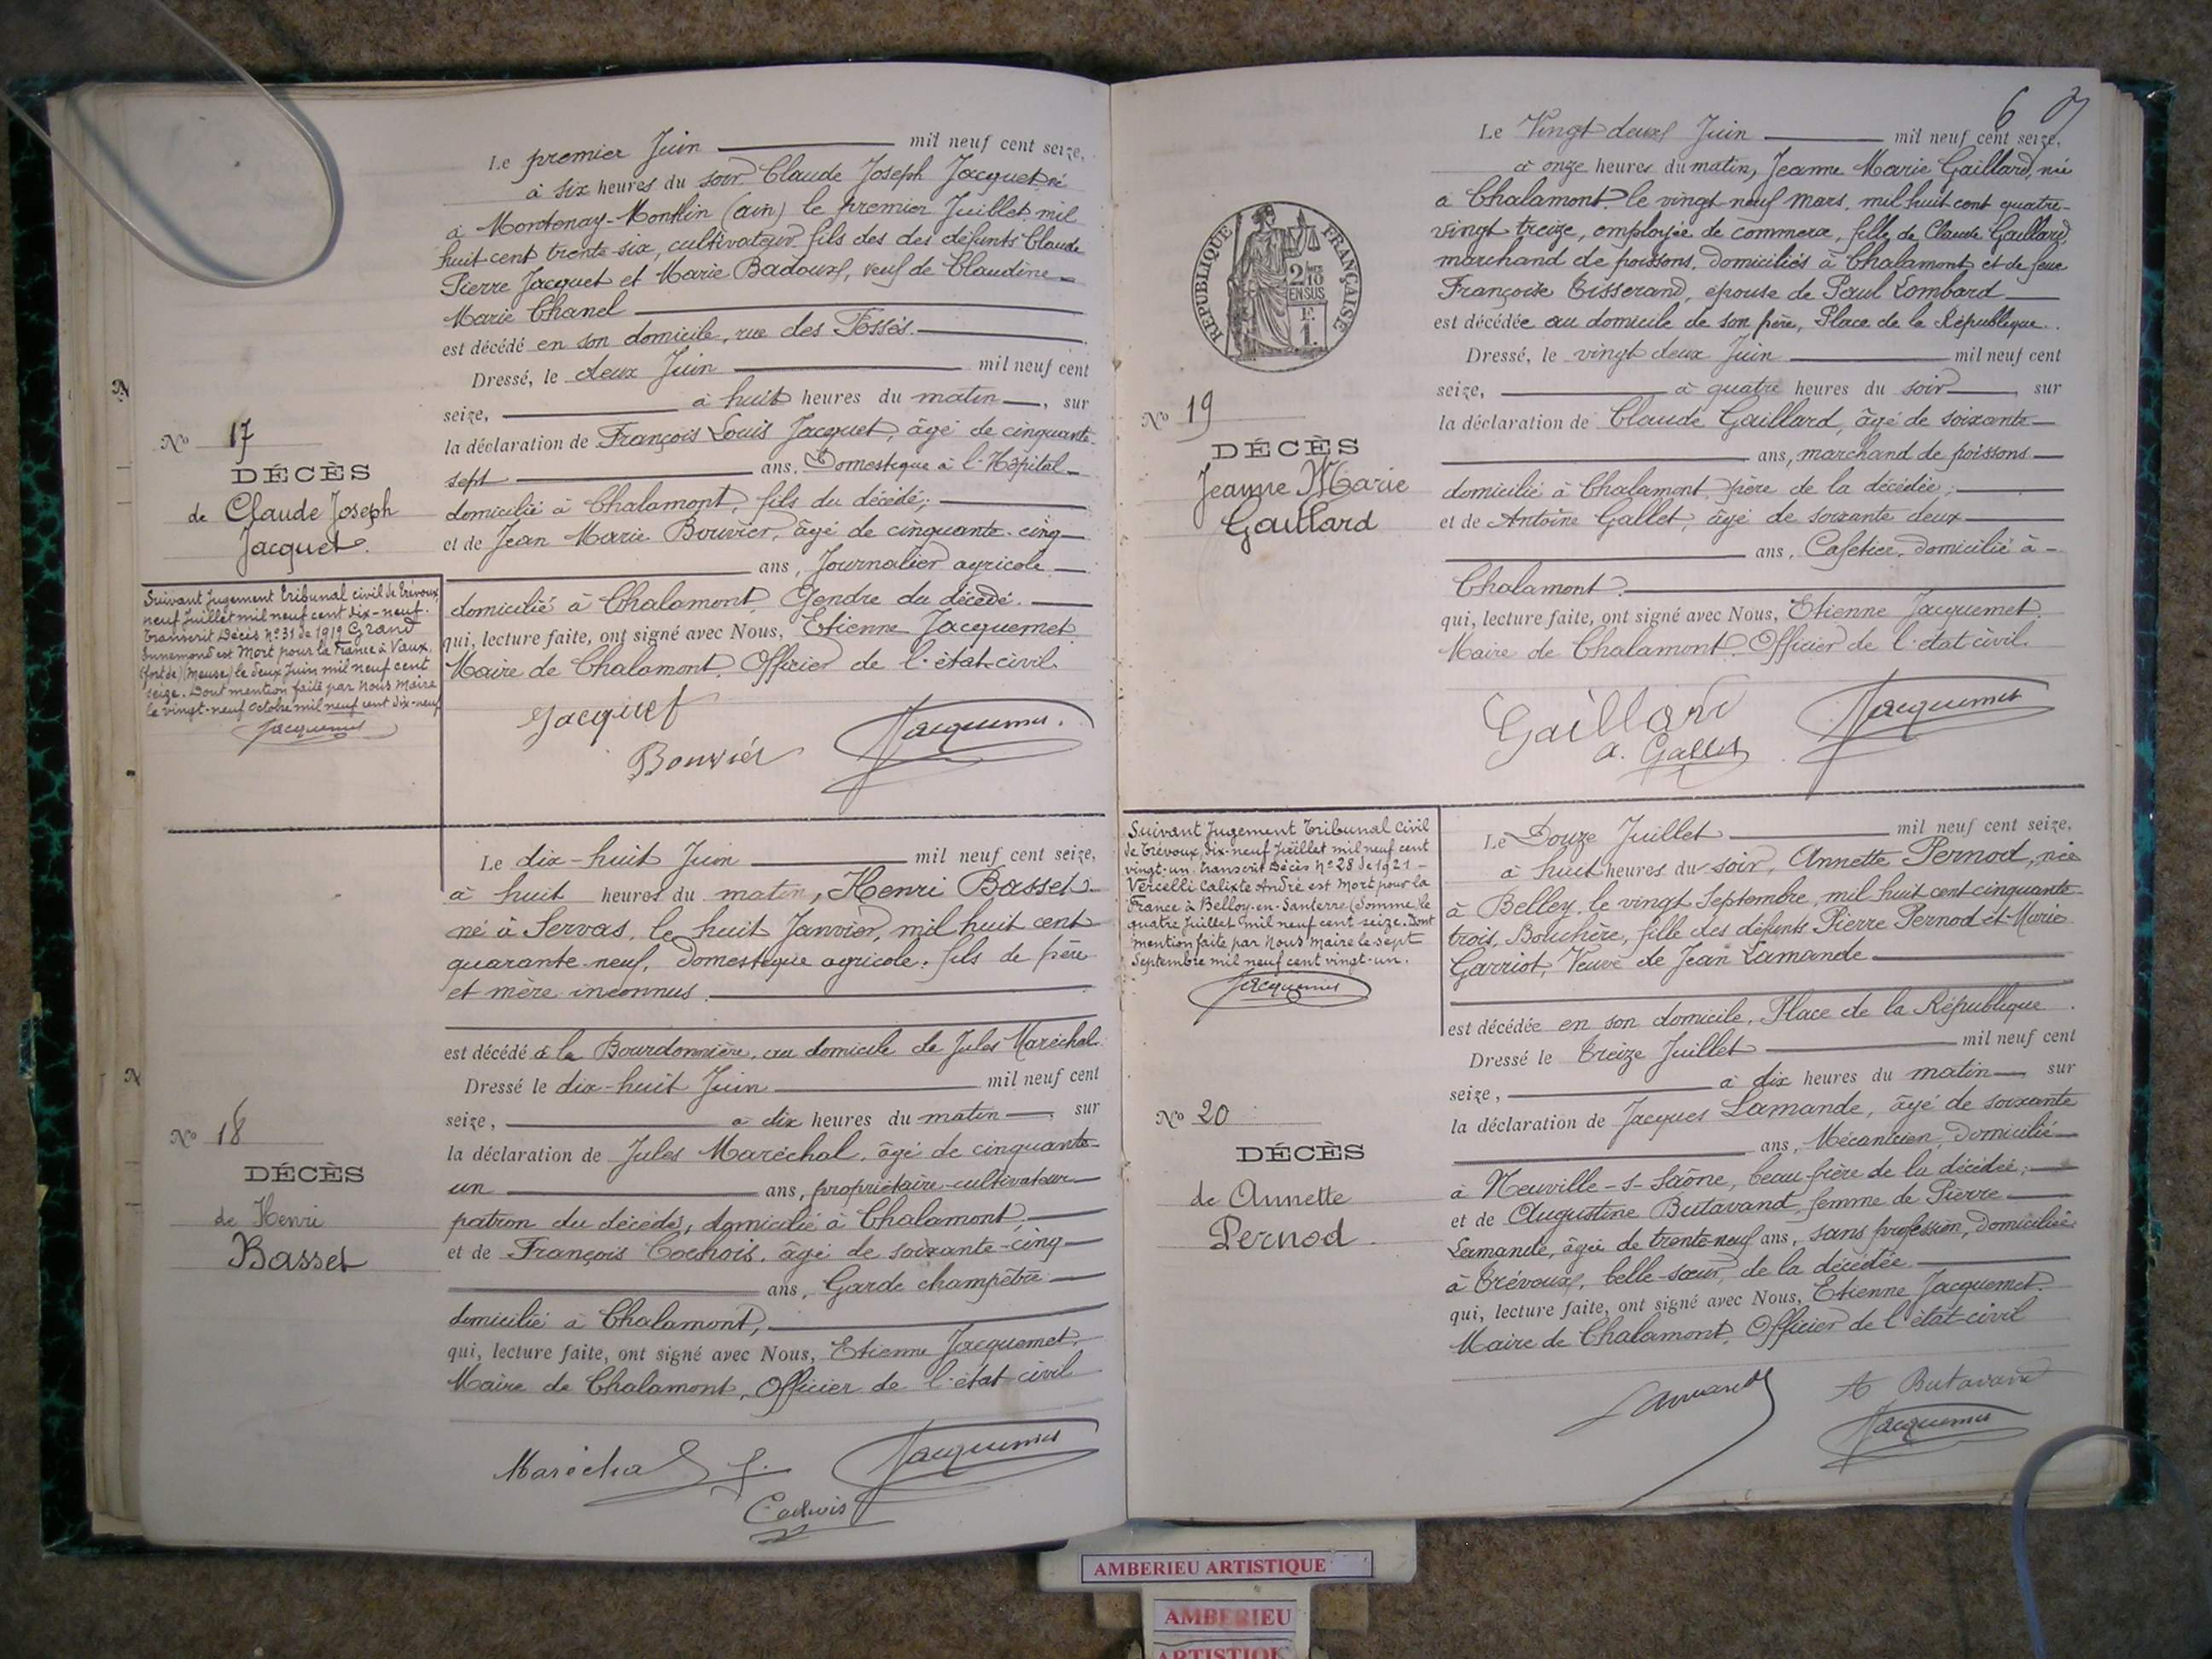 Le premier Juin mil neuf cent seize,
à six heures du soir Claude Joseph Jacquet né
à Montenay-Montlin (ain) le premier Juillet mil
huit cent trente six, cultivateur fils des des défunts Claude
Pierre Jacquet et Marie Badoux, veuf de Claudine
Marie Chanel
est décédé en son domicile, rue des Fossés.
Dressé, le deux Juin mil neuf cent
seize, à huit heures du matin, sur
la déclaration de François Louis Jacquet, âgé de cinquante-
sept ans, Domestique à l'Hôpital
domicilié à Chalamont, fils du décédé,
et de Jean Marie Bouvier, âgé de cinquante-cinq
ans, Journalier agricole
domicilié à Chalamont, Gendre du décédé.
qui, lecture faite, ont signé avec Nous, Etienne Jacquemet
Maire de Chalamont, Officier de l'état-civil.
Jacquet
Bouvier
Jacquemet
No 17
DÉCÈS
de Claude Joseph
Jacquet.
Suivant Jugement Tribunal civil de Trévoux,
neuf Juillet mil neuf cent dix-neuf.
transcrit Décès No 31 de 1919 Grand
Ennemond est Mort pour la France à Vaux,
(fort de) (Meuse) le deux Juin mil neuf cent
seize. Dont mention faite par Nous Maire
le vingt-neuf octobre mil neuf cent dix-neuf
Jacquemet
Le dix-huit Juin mil neuf cent seize,
à huit heures du matin, Henri Basset
né à Servas, le huit Janvier, mil huit cent
quarante-neuf, domestique agricole, fils de père
et mère inconnus.
est décédé à la Bourdonnière, au domicile de Jules Maréchal.
Dressé le dix-huit Juin mil neuf cent
seize, à dix heures du matin, sur
la déclaration de Jules Maréchal, âgé de cinquante-
un ans, propriétaire-cultivateur
patron du décédé, domicilié à Chalamont,
et de François Cochois, âgé de soixante-cinq
ans, Garde champêtre
domicilié à Chalamont,
qui, lecture faite, ont signé avec Nous, Etienne Jacquemet,
Maire de Chalamont, Officier de l'état-civil
Maréchal
Jacquemet
Cochois
No 18
DÉCÈS
de Henri
Basset
6
Le Vingt deux Juin mil neuf cent seize,
à onze heures du matin, Jeanne Marie Gaillard, née
à Chalamont le vingt neuf mars, mil huit cent quatre-
vingt treize, employée de commerce, fille de Claude Gaillard,
marchand de poissons, domiciliés à Chalamont et de feue
Françoise Tisserand, épouse de Paul Lombard
est décédée au domicile de son père, Place de la République.
Dressé, le vingt deux Juin mil neuf cent
seize, à quatre heures du soir, sur
la déclaration de Claude Gaillard, âgé de soixante
ans, marchand de poissons
domicilié à Chalamont, père de la décédée,
et de Antoine Gallet, âgé de soixante deux
ans, Cafetier, domicilié à
Chalamont.
qui, lecture faite, ont signé avec Nous, Etienne Jacquemet
Maire de Chalamont, Officier de l'état civil.
Gaillard
a. Gallet
Jacquemet
RÉPUBLIQUE FRANÇAISE
2/10
EN SUS
No 19
DÉCÈS
Jeanne Marie
Gaillard
Suivant Jugement Tribunal Civil
de Trévoux, dix-neuf Juillet mil neuf cent
vingt-un. transcrit Décès No 28 de 1921
Vercelli Calixte André est Mort pour la
France à Belloy-en-Santerre (Somme) le
quatre Juillet mil neuf cent seize. Dont
mention faite par Nous Maire le sept
Septembre mil neuf cent vingt-un.
Jacquemet
Le Douze Juillet mil neuf cent seize,
à huit heures du soir, Annette Pernod, née
à Belley, le vingt Septembre, mil huit cent cinquante-
trois, Bouchère, fille des défunts Pierre Pernod et Marie
Garriot, Veuve de Jean Lamande
est décédée en son domicile, Place de la République.
Dressé le treize Juillet mil neuf cent
seize, à dix heures du matin, sur
la déclaration de Jacques Lamande, âgé de soixante
ans, Mécanicien, domicilié
à Neuville-s-Saône, beau-frère de la décédée,
et de Augustine Butavand, femme de Pierre
Lamande, âgée de trente-neuf ans, sans profession, domiciliée
à Trévoux, belle-sœur de la décédée
qui, lecture faite, ont signé avec Nous, Etienne Jacquemet.
Maire de Chalamont, Officier de l'état-civil
Lamande
A Butavand
Jacquemet
No 20
DÉCÈS
de Annette
Pernod
AMBERIEU ARTISTIQUE
AMBERIEU
ARTISTIQUE